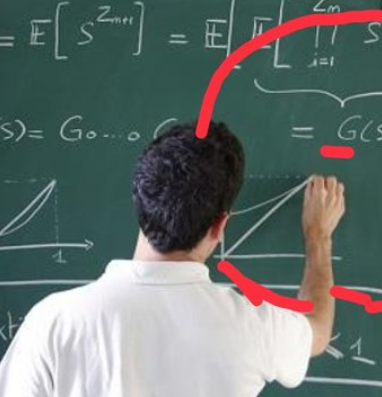 = E[ S^{Z_{m+1}} ] = E[ E[ ∏_{i=1}^{Z_m} S
(S) = G∘...∘G = G(S
1
1